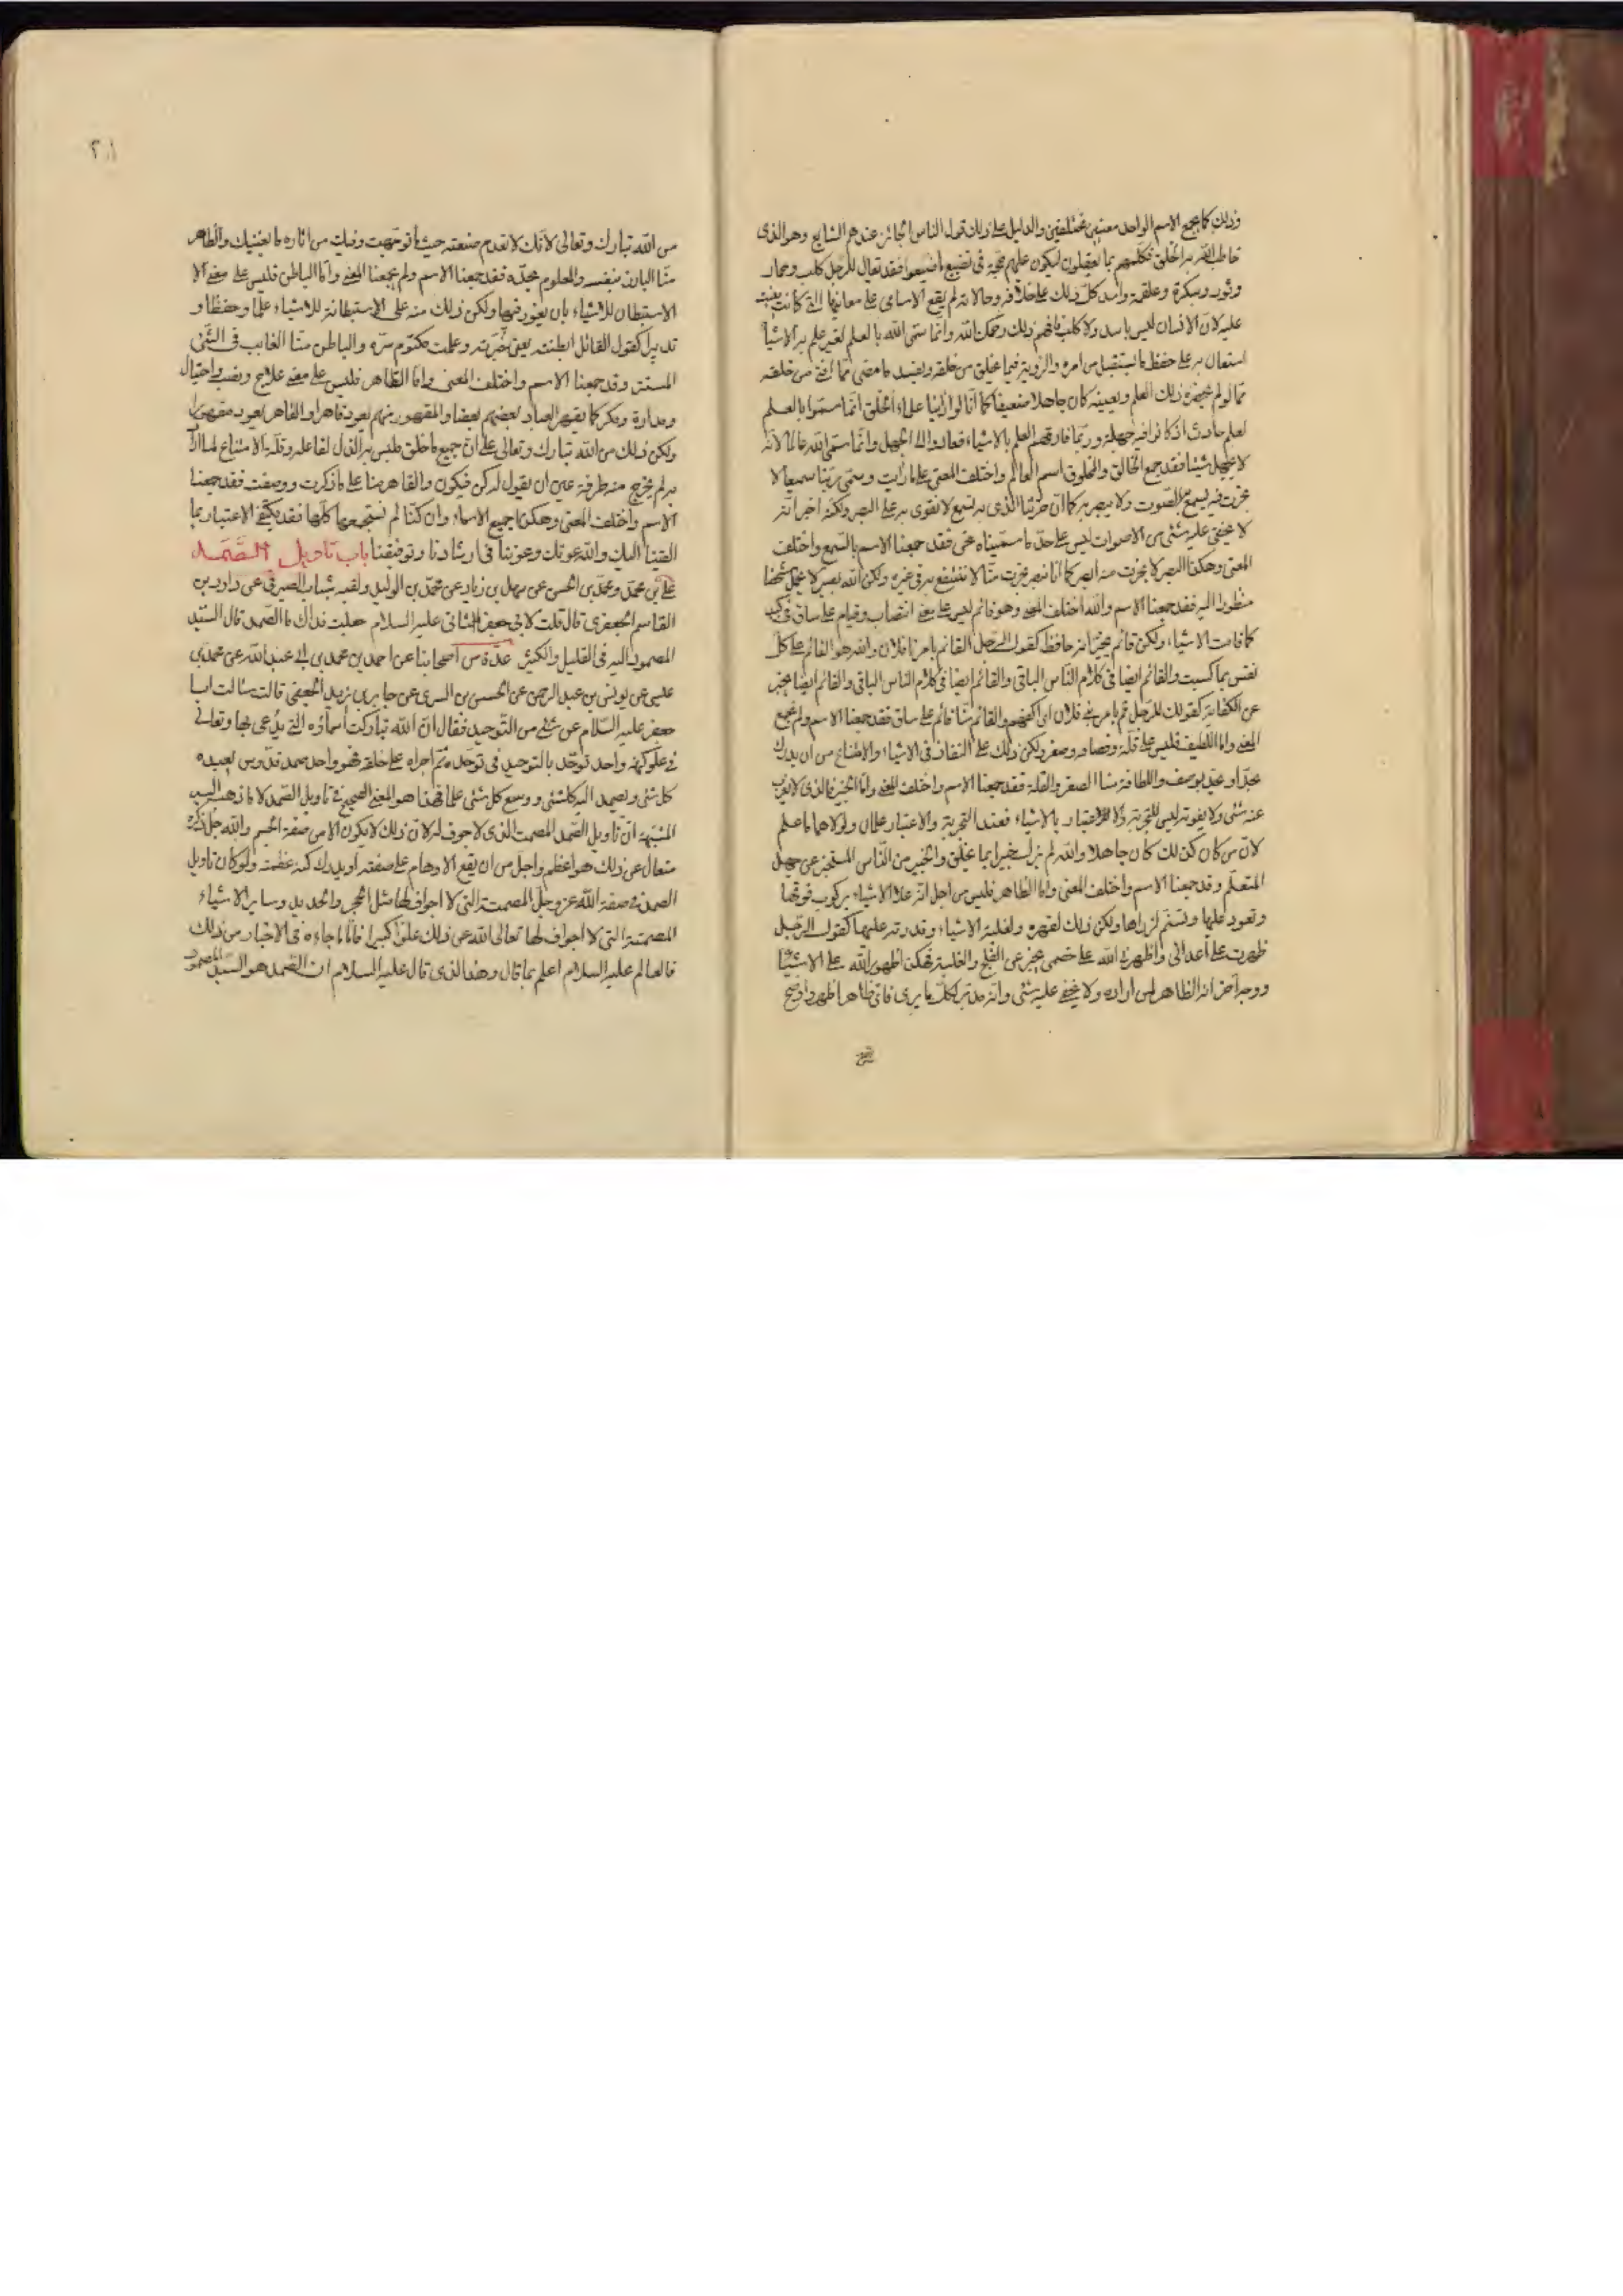 وذلك كما يجمع الاسم الواحد معنيين مختلفين والدليل على ذلك قول الناس الجائز عندهم الشايع وهو الذى
خاطب الله به الخلق فكلمهم بما يعقلون ليكون عليهم حجة فى تضييع ما ضيعوا فقد يقال للرجل كلب وحمار
وثور وسكرة وعلقمة واسد كل ذلك على خلافه وحالاته لم يقع الاسامى على معانيها التى كانت بنيت
عليه لان الانسان ليس باسد ولا كلب فافهم ذلك رحمك الله وانما سمى الله بالعلم لغير علم به الاشيا
استعان به على حفظ ما يستقبل من امره والروية فيما يخلق من خلقه ويفسد ما مضى مما افنى من خلقه
مما لو لم يحضره ذلك العلم ويعينه كان جاهلا ضعيفا كما انا لو راينا علماء الخلق انما سموا بالعلم
لعلم حادث اذ كانوا فيه جهلة وربما فارقهم العلم بالاشياء فعادوا الى الجهل وانما سمى الله عالما لانه
لا يجهل شيئا فقد جمع الخالق والمخلوق اسم العالم واختلف المعنى على ما رايت وسمى ربنا سميعا لا
بخرت فيه يسمع به الصوت ولا يبصر به كما ان خرتنا الذى به نسمع لا نقوى به على البصر ولكنه اخبر انه
لا يخفى عليه شئى من الاصوات ليس على حد ما سمينا نحن فقد جمعنا الاسم بالسمع واختلف
المعنى وهكذا البصر لا بخرت منه ابصر كما انا نبصر بخرت منا لا ننتفع به فى غيره ولكن الله بصير لا يحتمل شخصا
منظورا اليه فقد جمعنا الاسم واختلف المعنى وهو قائم ليس على معنى انتصاب وقيام على ساق فى كبد
كما قامت الاشياء ولكن قائم يخبر انه حافظ كقول الرجل القائم بامرنا فلان والله هو القائم على كل
نفس بما كسبت والقائم ايضا فى كلام الناس الباقى والقائم ايضا فى كلام الناس الباقى والقائم ايضا يخبر
عن الكفاية كقولك للرجل قم بامر بنى فلان اى اكفهم والقائم منا قائم على ساق فقد جمعنا الاسم ولم نجمع
المعنى واما اللطيف فليس على قلة وقضافة وصغر ولكن ذلك على النفاذ فى الاشياء والامتناع من ان يدرك
بحد او بحد بوصف واللطافة منا الصغر والقلة فقد جمعنا الاسم واختلف المعنى واما الخبير فالذى لا يعزب
عنه شئى ولا يفوته ليس للتجربة ولا للاعتبار بالاشياء فعند التجربة والاعتبار علمان ولولاهما ما علم
لان من كان كذلك كان جاهلا والله لم يزل خبيرا بما يخلق والخبير من الناس المستخبر عن جهل
المتعلم وقد جمعنا الاسم واختلف المعنى واما الظاهر فليس من اجل انه علا الاشياء بركوب فوقها
وقعود عليها وتسنم لذراها ولكن ذلك لقهره ولغلبة الاشياء وقدرته عليها كقول الرجل
ظهرت على اعدائى واظهرنى الله على خصمى يخبر عن الفلج والغلبة فهكذا ظهور الله على الاشيا
ووجه آخر انه الظاهر لمن اراده ولا يخفى عليه شئى وانه مدبر لكل ما يرى فاى ظاهر اظهر واوضح
من الله تبارك وتعالى لانك لا تعدم صنعته حيث ما توجهت وفيك من اثاره ما يغنيك والظاهر
منا البارز بنفسه والمعلوم بحده فقد جمعنا الاسم ولم يجمعنا المعنى واما الباطن فليس على معنى الا
الاستبطان للاشياء بان يغور فيها ولكن ذلك منه على الاستبطانة للاشياء علما وحفظا و
تدبيرا كقول القائل ابطنته يعنى خبرته وعلمت مكتوم سره والباطن منا الغايب فى الشئ
المستتر وقد جمعنا الاسم واختلف المعنى واما القاهر فليس على معنى علاج ونصب واحتيال
ومدارة ومكر كما يقهر العباد بعضهم بعضا والمقهور منهم يعود قاهرا والقاهر يعود مقهورا
ولكن ذلك من الله تبارك وتعالى على ان جميع ما خلق ملبس به الذل لفاعله وقلة الامتناع لما اراد
به لم يخرج منه طرفة عين ان يقول له كن فيكون والقاهر منا على ما ذكرت ووصفت فقد جمعنا
الاسم واختلف المعنى وهكذا جميع الاسماء وان كنا لم نستجمعها كلها فقد يكتفى الاعتبار بما
القينا اليك والله عونك وعوننا فى ارشادنا وتوفيقنا باب تاويل الصمد
على بن محمد ومحمد بن الحسن عن سهل بن زياد عن محمد بن الوليد ولقبه شباب الصيرفى عن داود بن
القاسم الجعفرى قال قلت لابى جعفر الثانى عليه السلام جعلت فداك ما الصمد قال السيد
المصمود اليه فى القليل والكثير عدة من اصحابنا عن احمد بن محمد بن ابى عبد الله عن محمد بن
عيسى عن يونس بن عبد الرحمن عن الحسن بن السرى عن جابر بن يزيد الجعفى قالت سالت ابا
جعفر عليه السلام عن شئى من التوحيد فقال ان الله تباركت أسماؤه التى يدعى بها وتعالى
فى علو كنهه واحد توحد بالتوحيد فى توحده ثم اجراه على خلقه فهو واحد صمد قدوس يعبده
كل شئى ويصمد اليه كل شئى ووسع كل شئى علما فهذا هو المعنى الصحيح فى تاويل الصمد لا ما ذهب اليه
المشبهة ان تاويل الصمد المصمت الذى لا جوف له لان ذلك لا يكون الا من صفة الجسم والله جل ذكره
متعال عن ذلك هو اعظم واجل من ان يقع الاوهام على صفته او يدرك كنه عظمته ولو كان تاويل
الصمد فى صفة الله عز وجل المصمت التى لا اجواف لها مثل الحجر والحديد وساير الاشياء
المصمتة التى لا اجواف لها تعالى الله عن ذلك علوا كبيرا فاما ما جاء فى الاخبار من ذلك
فالعالم عليه السلام اعلم بما قال وهذا الذى قال عليه السلام ان الصمد هو السيد المصمود